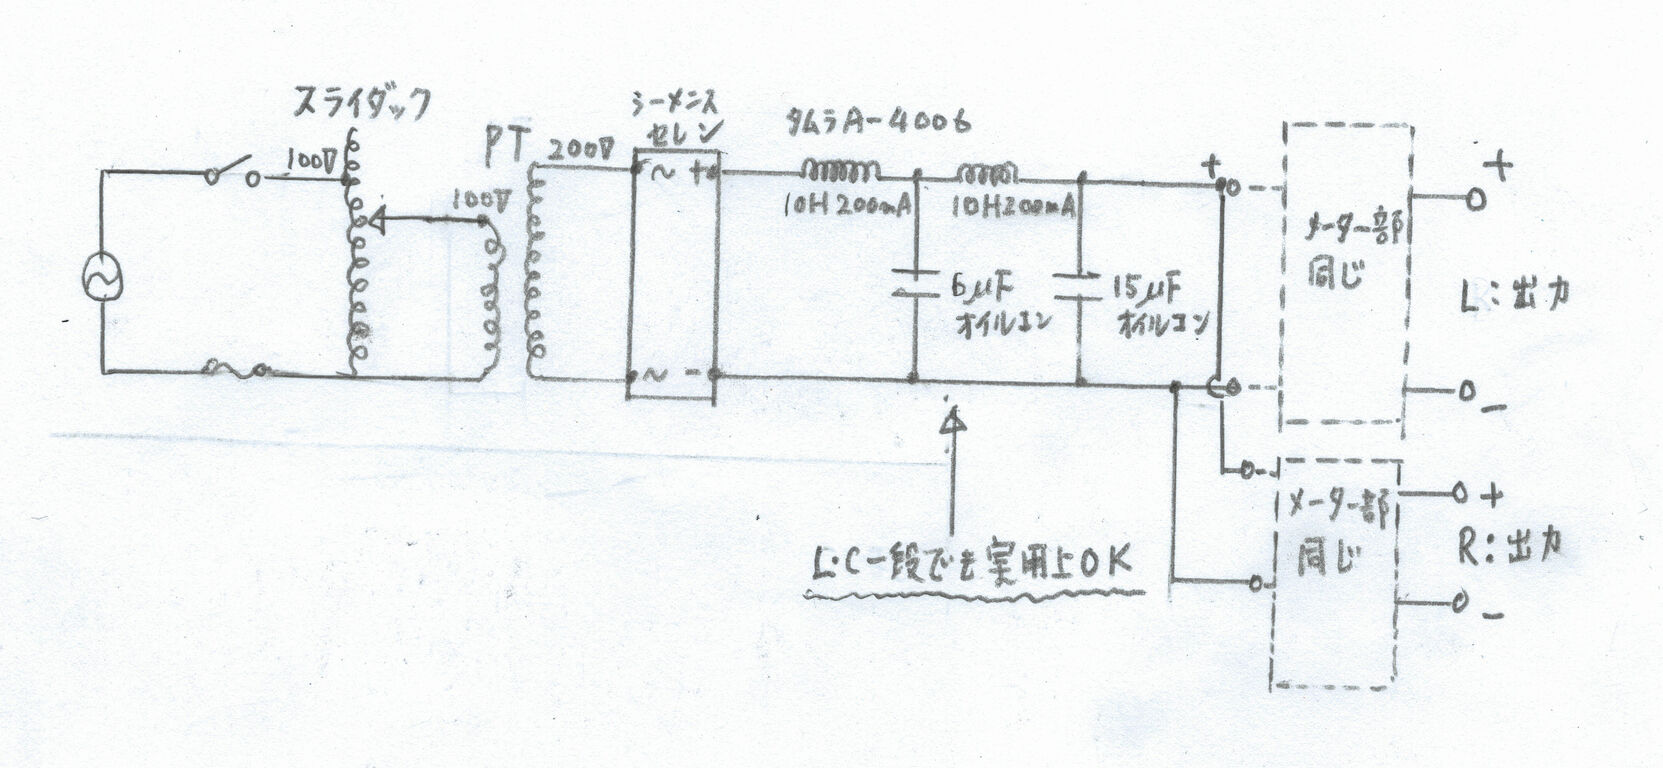 スライダック
100V
PT
100V
200V
シーメンス
セレン
~ +
~ -
タムラA-4006
10H 200mA
10H 200mA
6μF
オイルコン
15μF
オイルコン
+
メーター部
同じ
+
L:出力
-
メーター部
同じ
+
R:出力
-
L・C一段でも実用上OK